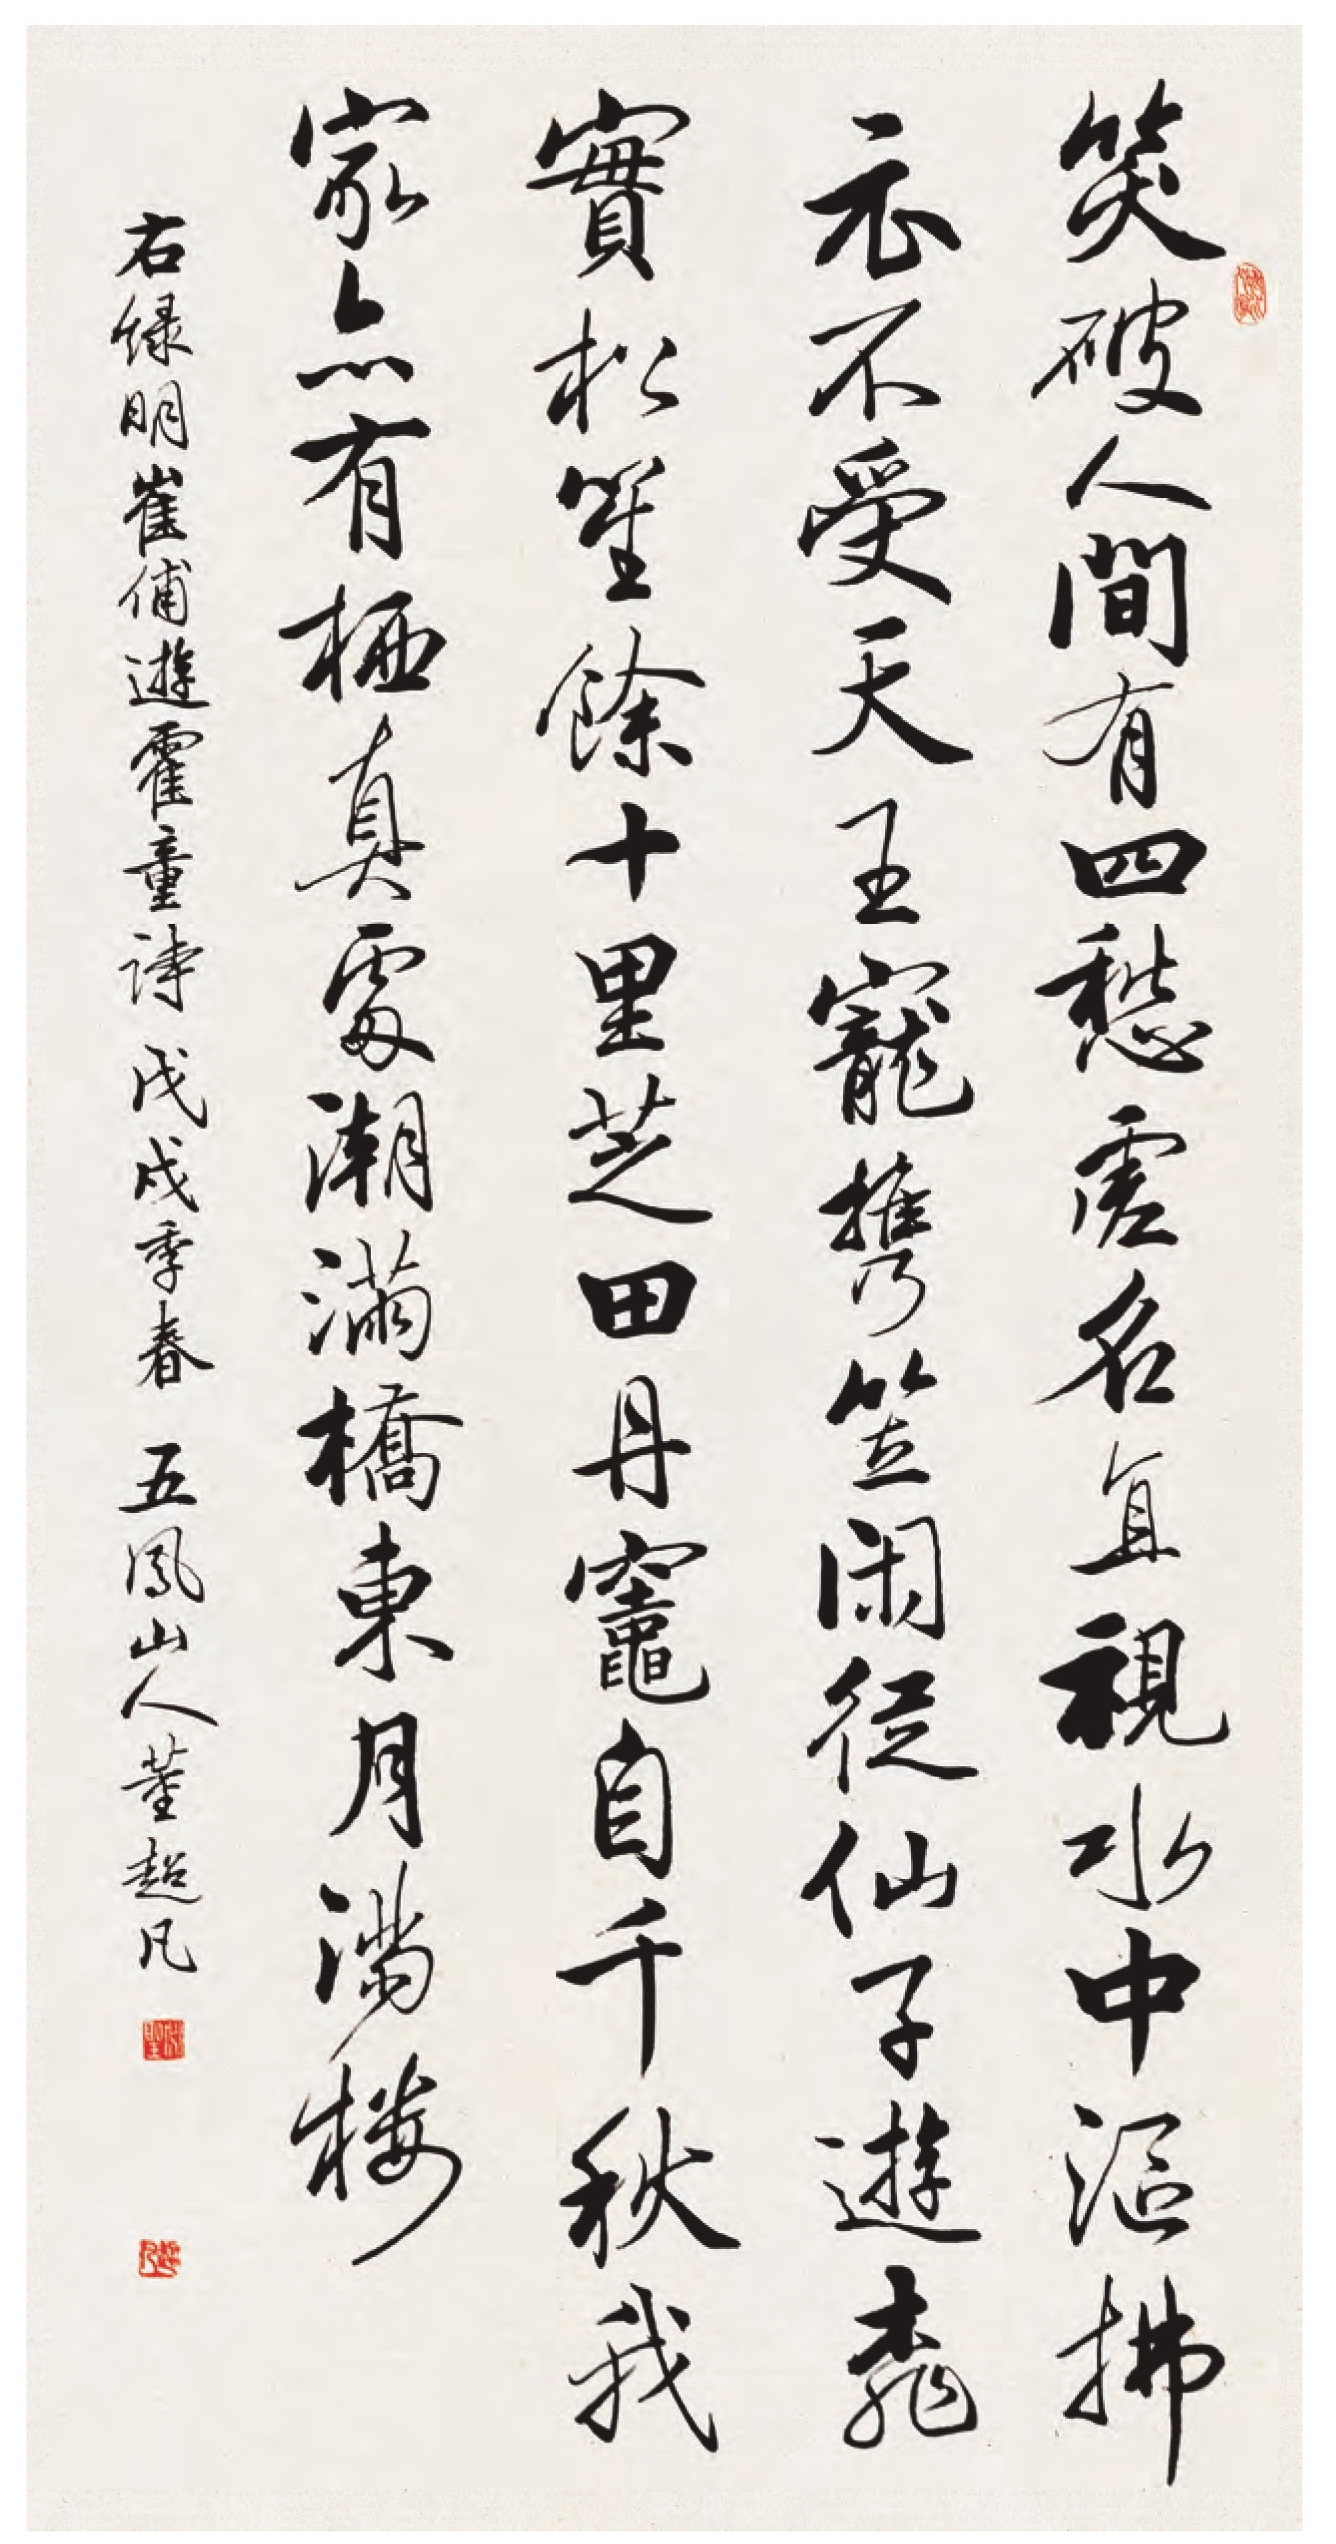 笑破人間有四愁虛名直視水中漚拂
衣不受天王寵攜笠閑從仙子遊桃
實松笙餘十里芝田丹竈自千秋我
家亦有棲真處潮滿橋東月滿樓
右錄明崔俌遊霍童詩戊戌季春五鳳山人董超凡